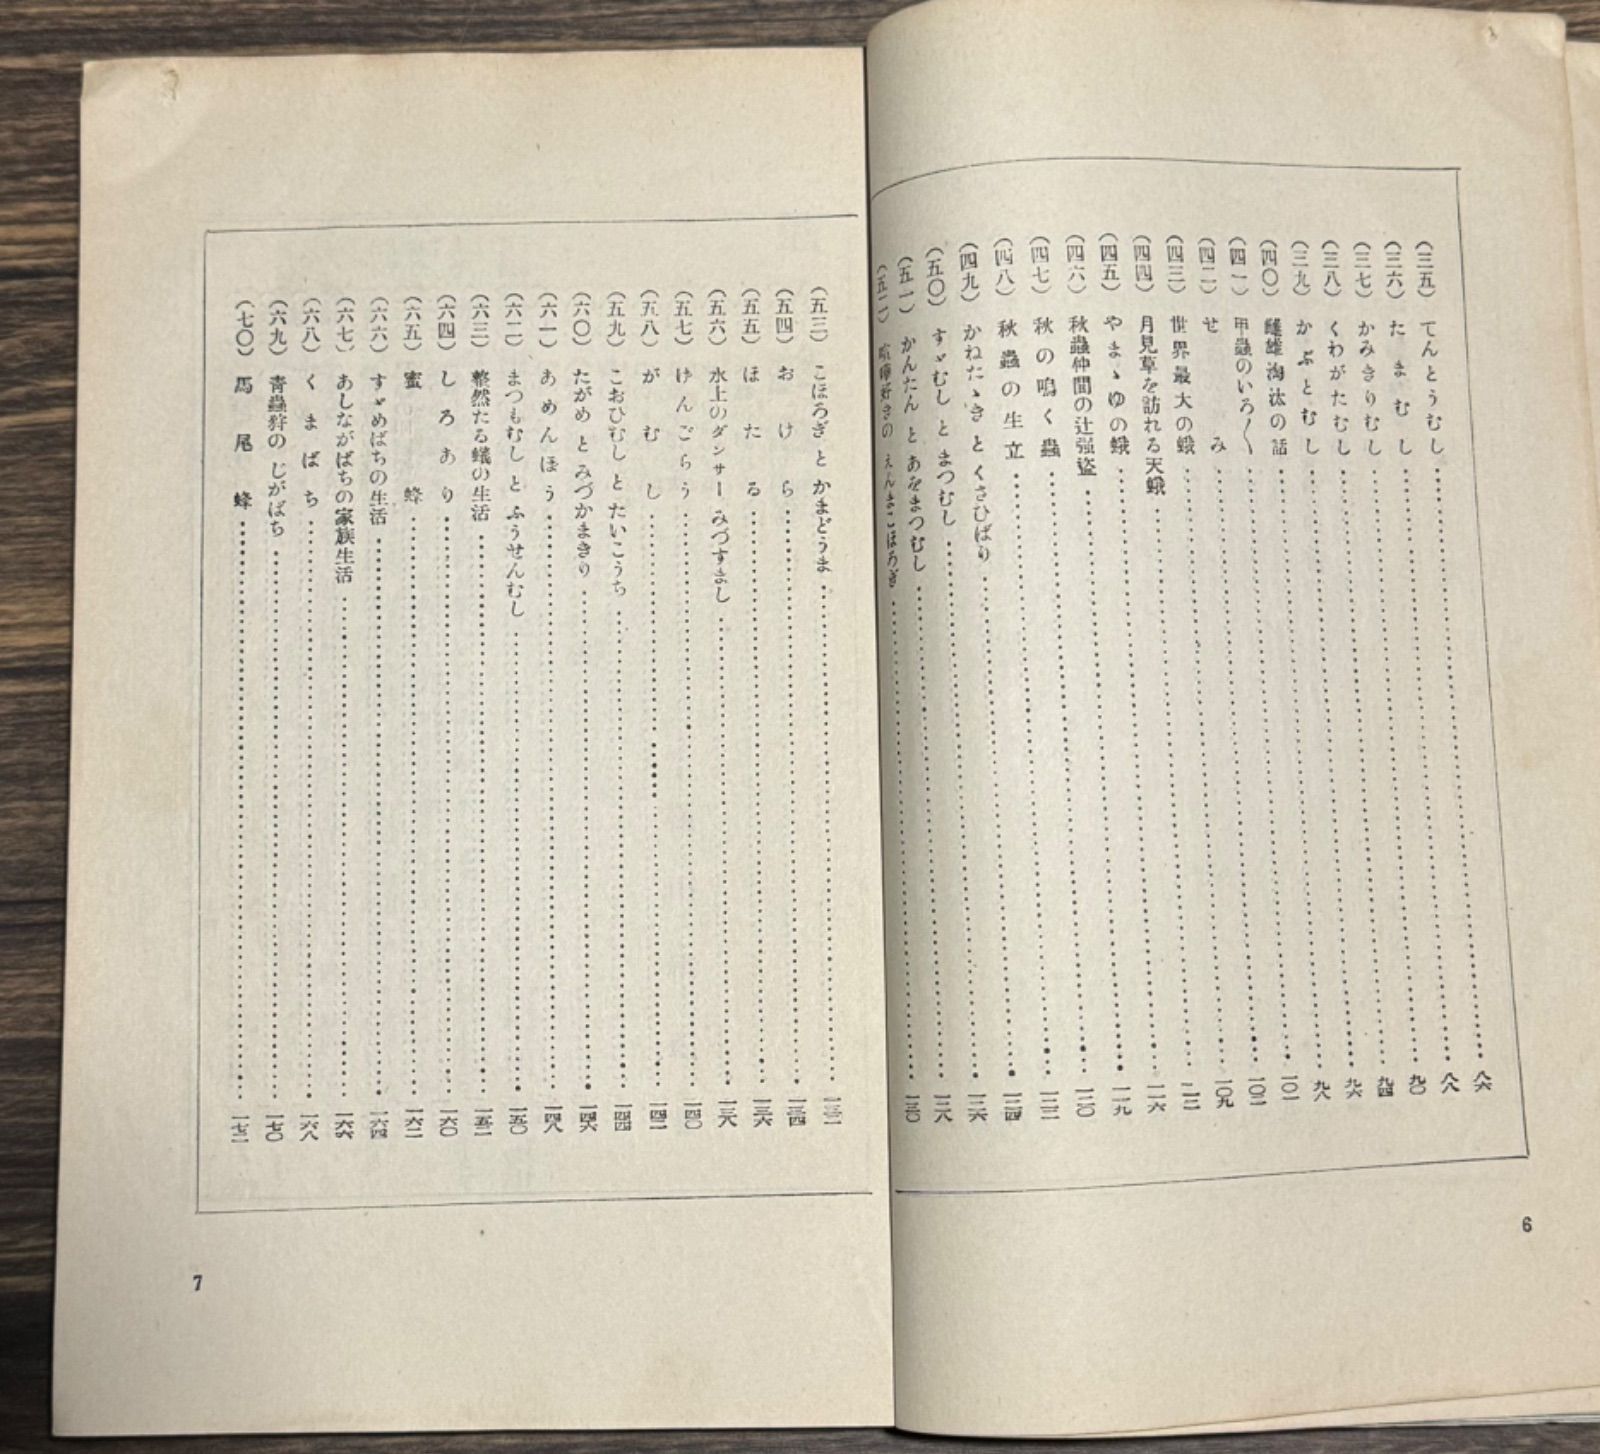 (三五) てんとうむし……八六
(三六) たまむし……八八
(三七) かみきりむし……九〇
(三八) くわがたむし……九四
(三九) かぶとむし……九六
(四〇) 雌雄淘汰の話……九八
(四一) 甲蟲のいろ〱……一〇一
(四二) せみ……一〇二
(四三) 世界最大の蛾……一〇九
(四四) 月見草を訪れる天蛾……
(四五) やまゝゆの蛾……一一六
(四六) 秋蟲仲間の辻强盜……一一九
(四七) 秋の鳴く蟲……一二〇
(四八) 秋蟲の生立……一二二
(四九) かねたゝき と くさひばり……一二四
(五〇) すゞむし と まつむし……一二六
(五一) かんたん と あをまつむし……一二八
(五二) 喧嘩好きの えんまこほろぎ……一三〇
6
(五三) こほろぎ と かまどうま……一三二
(五四) おけら……一三四
(五五) ほたる……一三六
(五六) 水上のダンサー みづすまし……一三八
(五七) げんごらう……一四〇
(五八) がむし……一四二
(五九) こおひむし と たいこうち……一四四
(六〇) たがめ と みづかまきり……一四六
(六一) あめんぼう……一四八
(六二) まつもむし と ふうせんむし……一五〇
(六三) 整然たる蟻の生活……一五二
(六四) しろあり……一六〇
(六五) 蜜蜂……一六二
(六六) すゞめばちの生活……一六四
(六七) あしながばちの家族生活……一六六
(六八) くまばち……一六八
(六九) 靑蟲狩の じがばち……一七〇
(七〇) 馬尾蜂……一七二
7